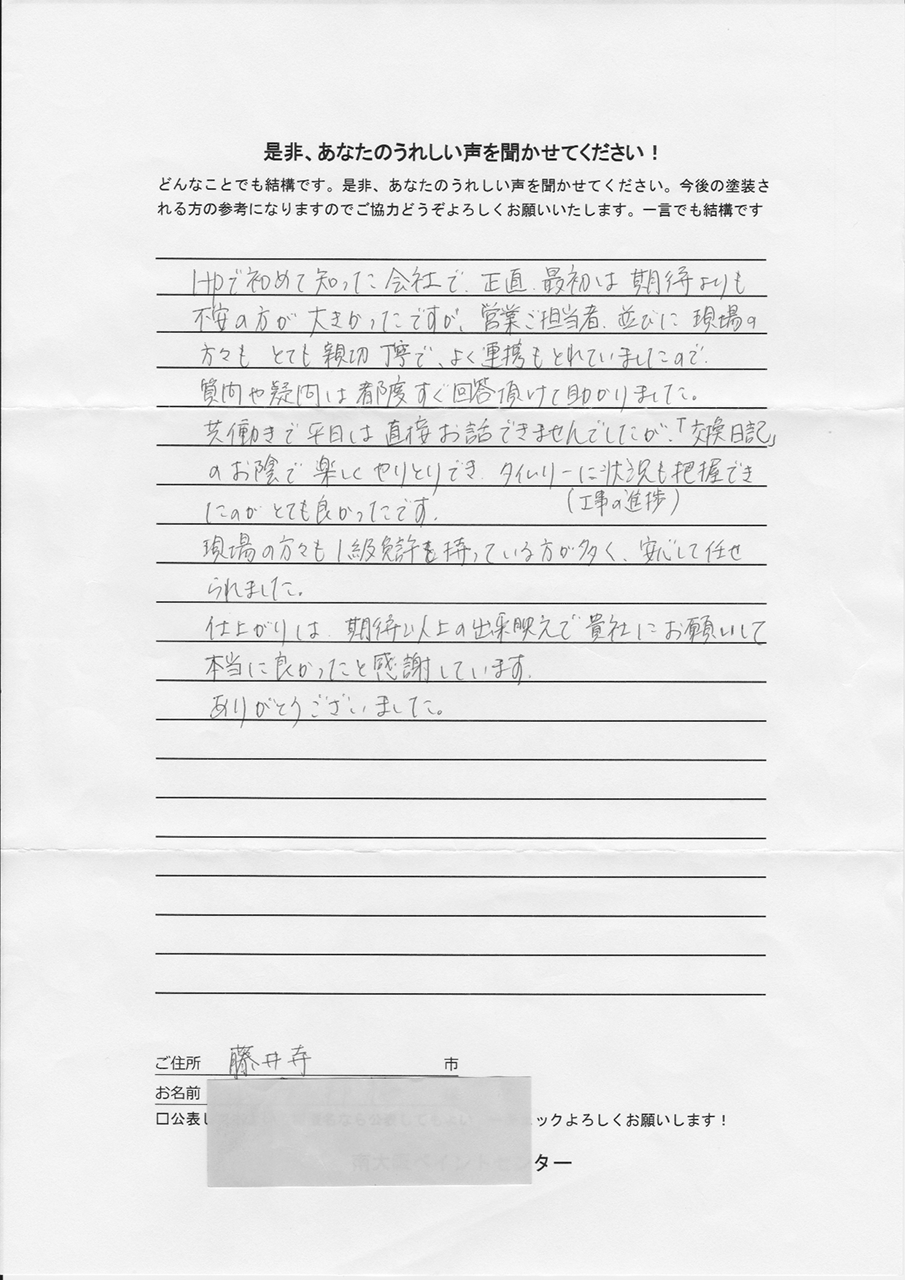 是非、あなたのうれしい声を聞かせてください！
どんなことでも結構です。是非、あなたのうれしい声を聞かせてください。今後の塗装さ
れる方の参考になりますのでご協力どうぞよろしくお願いいたします。一言でも結構です
HPで初めて知った会社で、正直、最初は期待よりも
不安の方が大きかったですが、営業ご担当者、並びに現場の
方々もとても親切丁寧で、よく連携もとれていましたので、
質問や疑問は都度すぐ回答頂けて助かりました。
共働きで平日は直接お話できませんでしたが、「交換日記」
のお陰で楽しくやりとりでき、タイムリーに状況も把握でき
(工事の進捗)
たのがとても良かったです。
現場の方々も1級免許を持っている方が多く、安心して任せ
られました。
仕上がりは、期待以上の出来映えで貴社にお願いして
本当に良かったと感謝しています。
ありがとうございました。
ご住所 藤井寺 市
お名前
□公表し ックよろしくお願いします！
ター